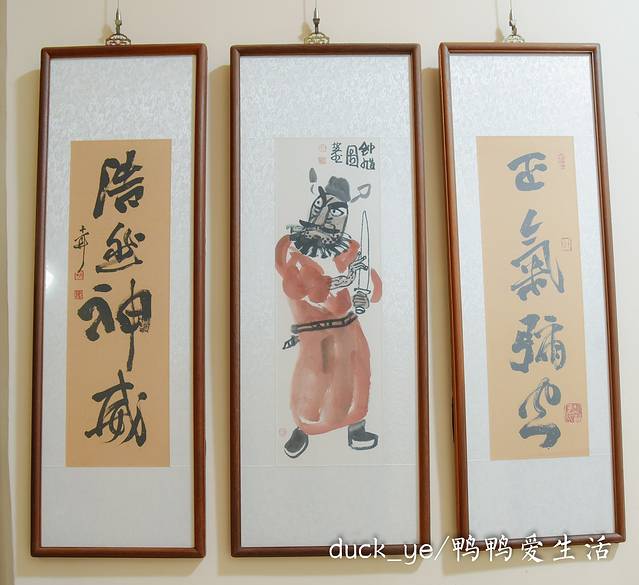 正氣彌空
鍾馗
圖
浩然神威
duck_ye/鸭鸭爱生活